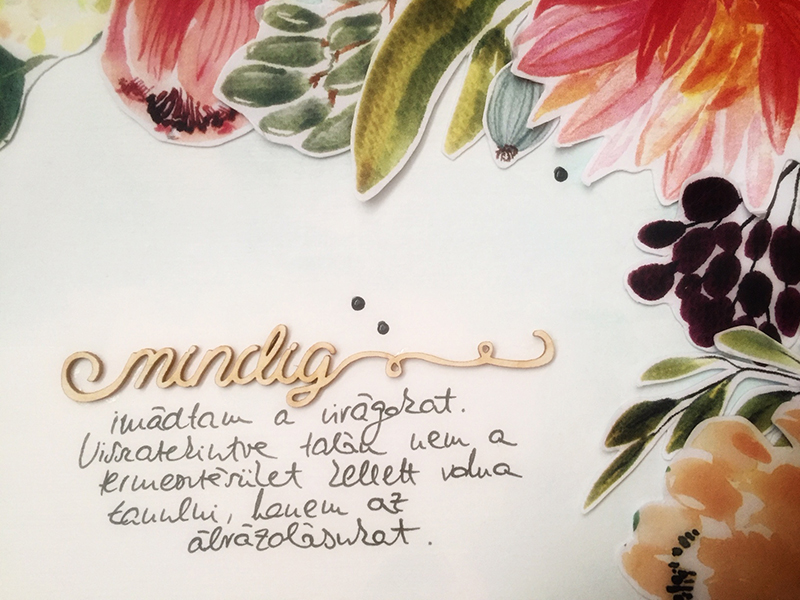 mindig
imádtam a virágokat.
Visszatekintve talán nem a
természetésület kellett volna
tanulni, hanem az
ábrázolásukat.